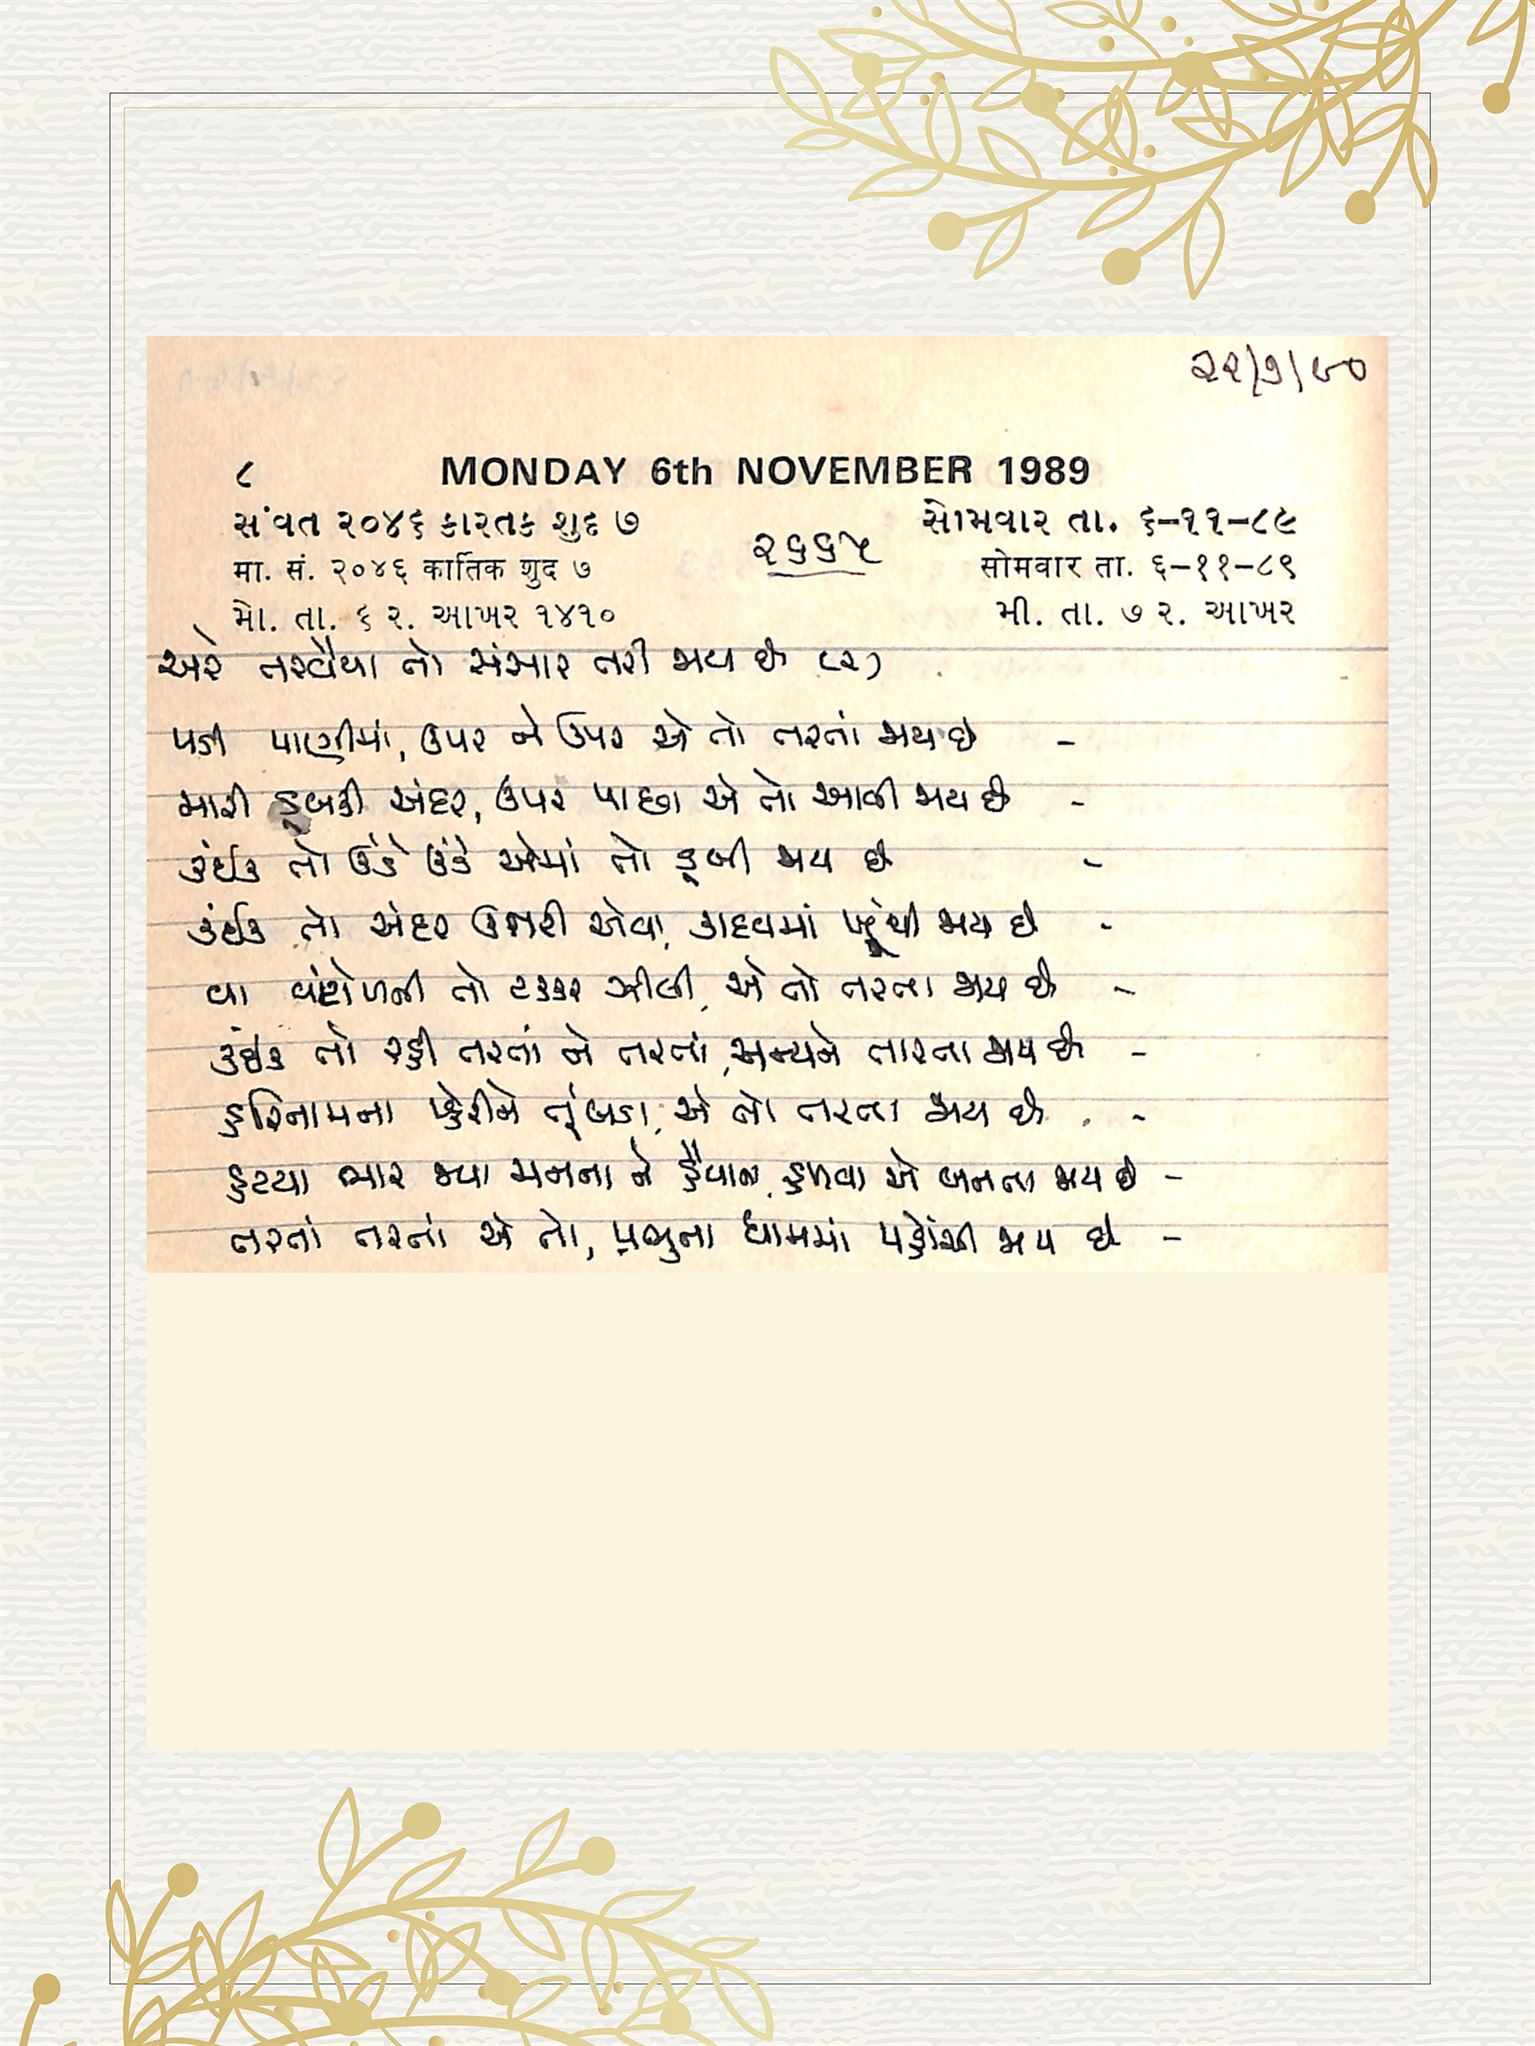 ૨૨/૭/૯૦
૮ MONDAY 6th NOVEMBER 1989
સંવત ૨૦૪૬ કારતક શુદ ૭ સોમવાર તા. ૬-૧૧-૮૯
૨૬૬૫
मा. सं. २०४६ कार्तिक शुद ७ सोमवार ता. ६-११-८९
મો. તા. ૬ ર. આખર ૧૪૧૦ મી. તા. ૭ ર. આખર
અરે તરવૈયા તો સંસાર તરી જાય છે (૨)
પડી પાણીમાં, ઉપર ને ઉપર એ તો તરતાં જાય છે -
મારી ડૂબકી અંદર, ઉપર પાછા એ તો આવી જાય છે -
કંઈક તો ઉંડે ઉંડે એમાં તો ડૂબી જાય છે -
કંઈક તો અંદર ઉતરી એવા, કાદવમાં ખૂંચી જાય છે -
વા વંટોળની તો ટક્કર ઝીલી, એ તો તરતા જાય છે -
કંઈક તો રહી તરતાં ને તરતાં, અન્યને તારતા જાય છે -
હરિનામના પહેરીને તૂંબડા, એ તો તરતા જાય છે -
હટયા ભાર જ્યા મનના ને હૈયાના, હળવા એ બનતા જાય છે -
તરતાં તરતાં એ તો, પ્રભુના ધામમાં પહોંચી જાય છે -